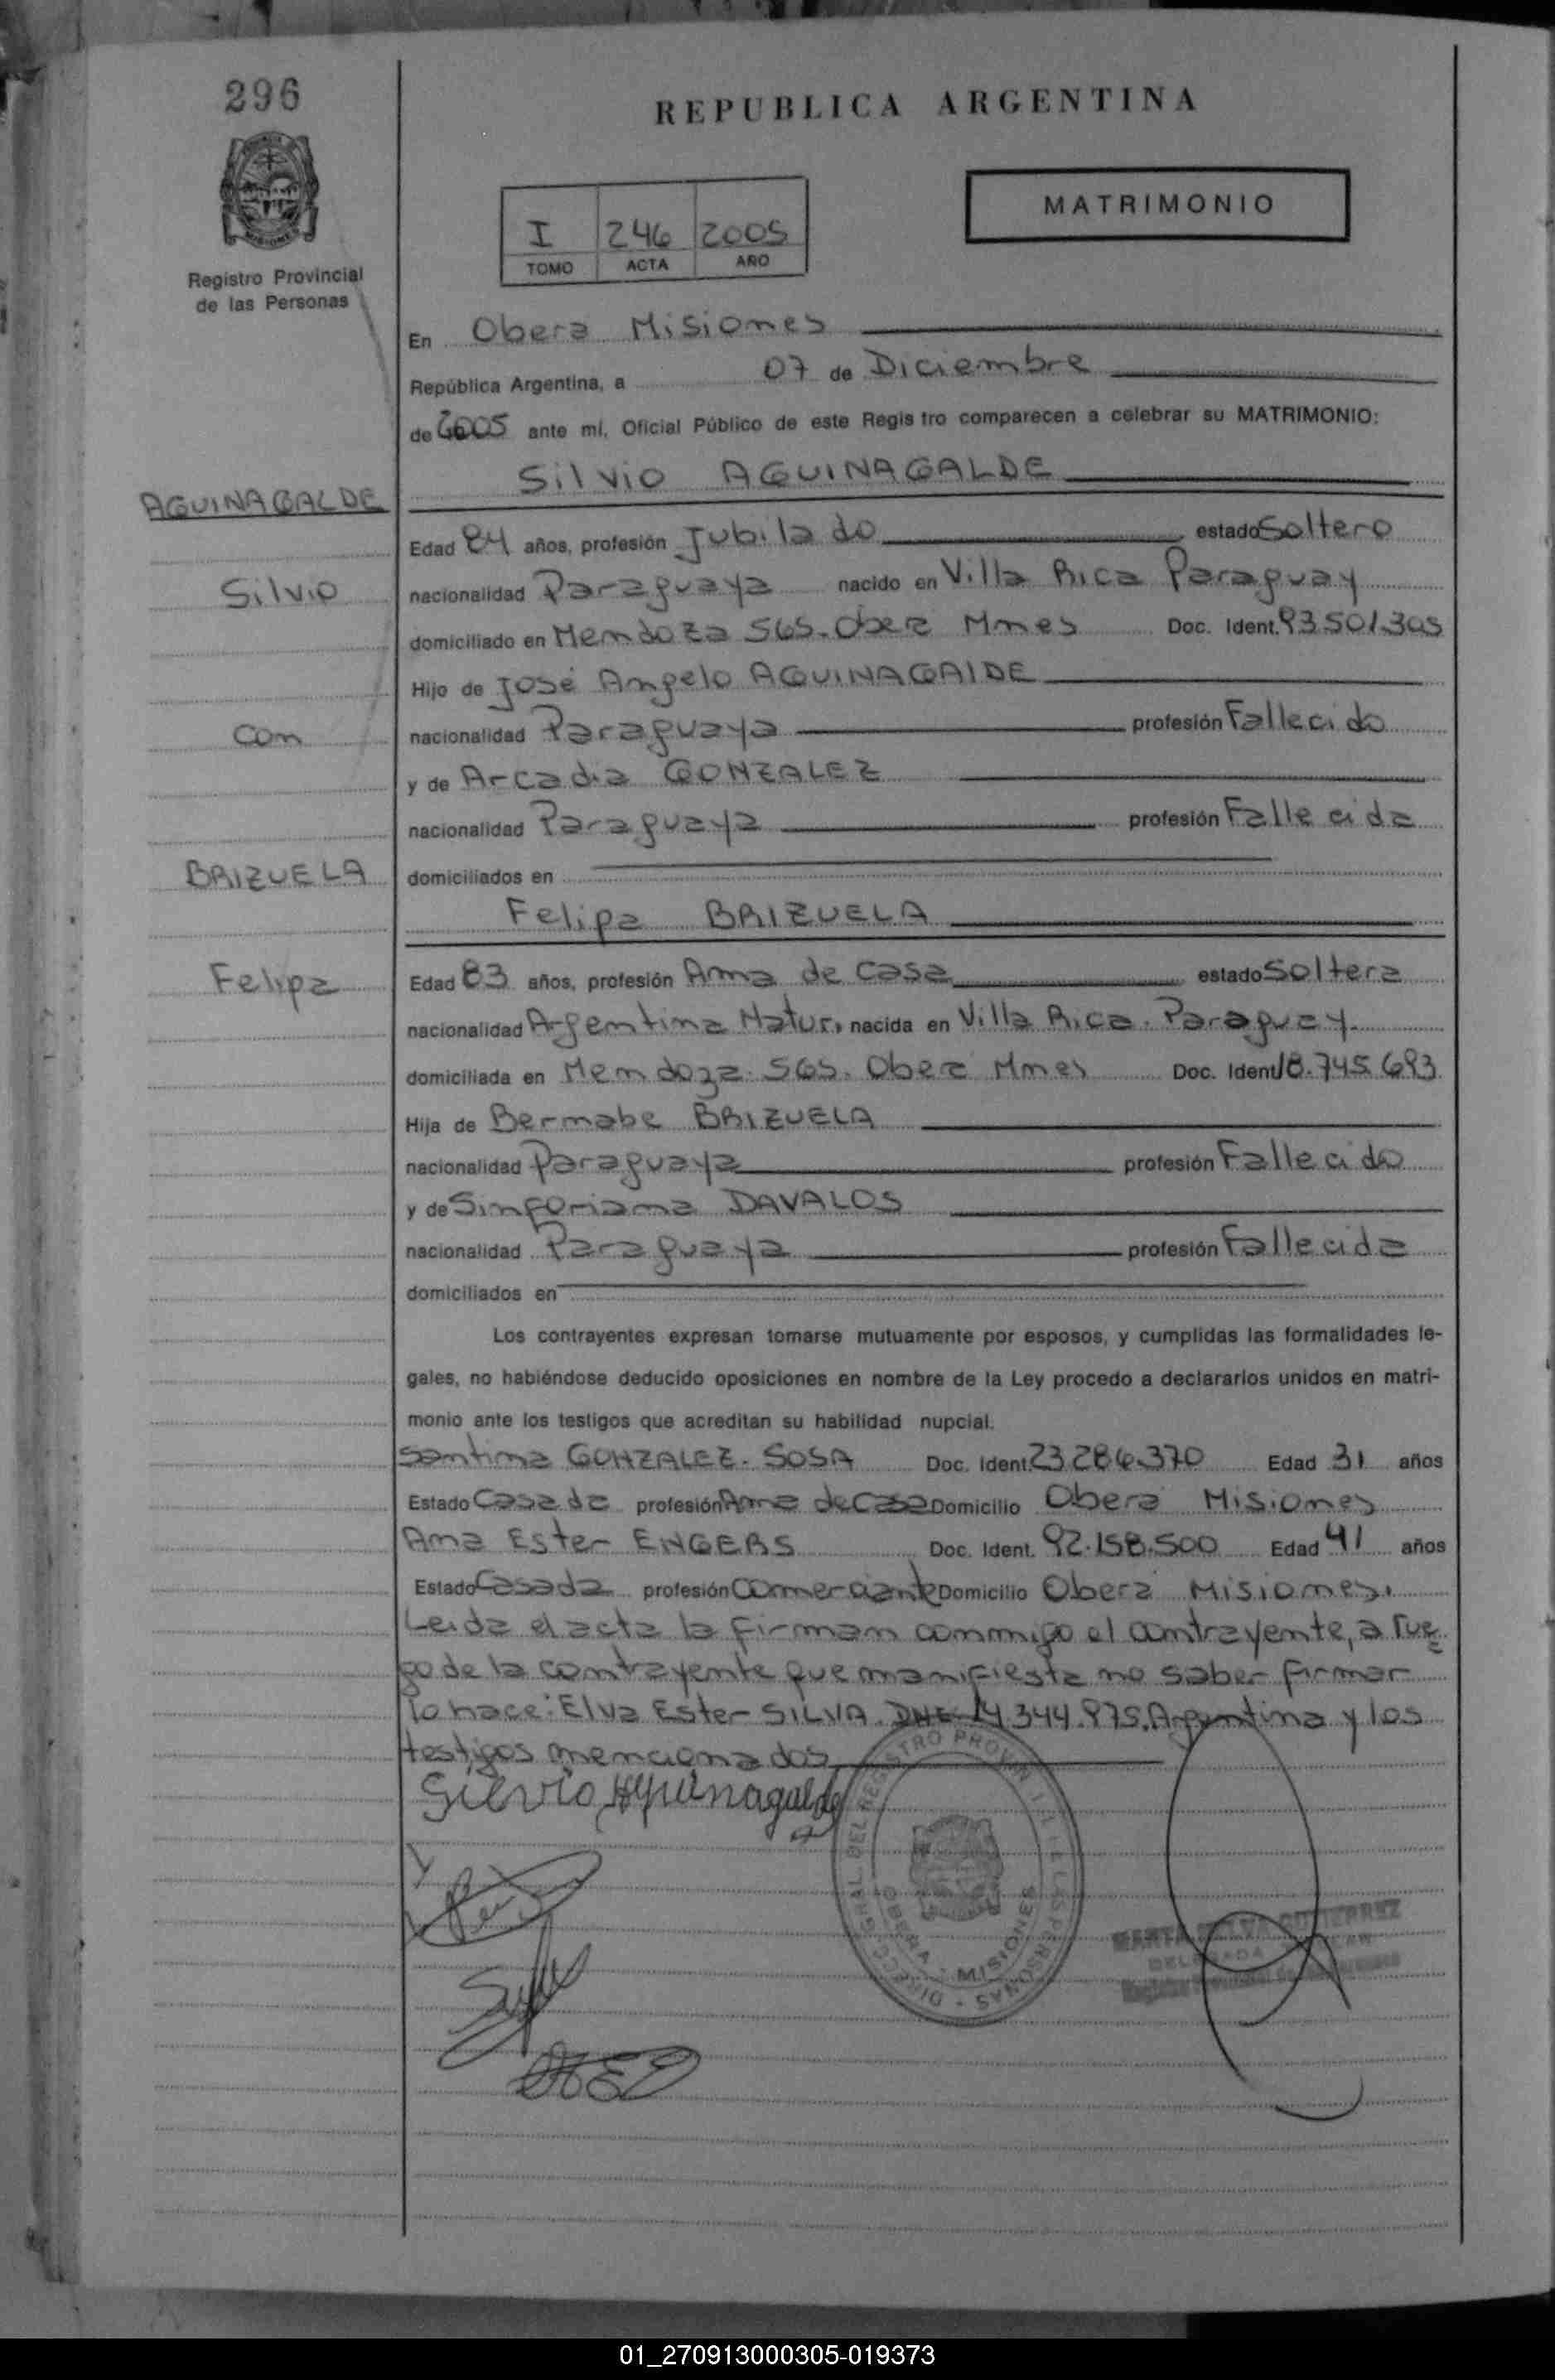 296
REPUBLICA ARGENTINA
MISIONES
Registro Provincial
de las Personas
I 246 2005
TOMO ACTA AÑO
MATRIMONIO
En Obera Misiones
República Argentina, a 07 de Diciembre
de 2005 ante mí, Oficial Público de este Regis tro comparecen a celebrar su MATRIMONIO:
Silvio AGUINAGALDE
AGUINAGALDE
Edad 84 años, profesión Jubilado estado Soltero
Silvio
nacionalidad Paraguaya nacido en Villa Rica Paraguay
domiciliado en Mendoza 565. Obera Mnes Doc. Ident. 93.501.305
Hijo de José Angelo AGUINAGALDE
con
nacionalidad Paraguaya profesión Fallecido
y de Arcadia GONZALEZ
nacionalidad Paraguaya profesión Fallecida
BRIZUELA
domiciliados en
Felipa BRIZUELA
Felipa
Edad 83 años, profesión Ama de casa estado Soltera
nacionalidad Argentina Natur. nacida en Villa Rica. Paraguay.
domiciliada en Mendoza. 565. Obera Mnes Doc. Ident. 18.745.693
Hija de Bernabe BRIZUELA
nacionalidad Paraguaya profesión Fallecido
y de Sinforiana DAVALOS
nacionalidad Paraguaya profesión Fallecida
domiciliados en
Los contrayentes expresan tomarse mutuamente por esposos, y cumplidas las formalidades le-
gales, no habiéndose deducido oposiciones en nombre de la Ley procedo a declararlos unidos en matri-
monio ante los testigos que acreditan su habilidad nupcial.
Santina GONZALEZ. SOSA Doc. Ident. 23.284.370 Edad 31 años
Estado Casada profesión Ama de Casa Domicilio Obera Misiones
Ana Ester ENGERS Doc. Ident. 92.158.500 Edad 41 años
Estado Casada profesión Comerciante Domicilio Obera Misiones.
Leida el acta la firman conmigo el contrayente, a rue
go de la contrayente que manifiesta no saber firmar
lo hace: Elva Ester SILVA. DNI 14.344.975. Argentina y los
testigos mencionados
Silvio Aguinagalde
DIRECC. GRAL DEL REGISTRO PROVINCIAL DE LAS PERSONAS
OBERA - MISIONES
MARTA SILVA GUTIERREZ
01_270913000305-019373